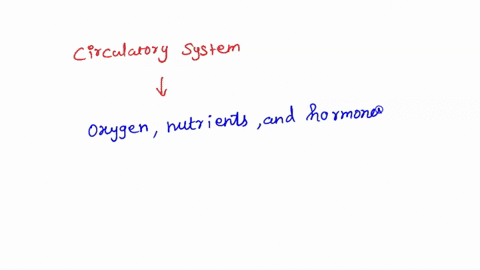 Circulatory System
↓
Oxygen, nutrients, and hormone